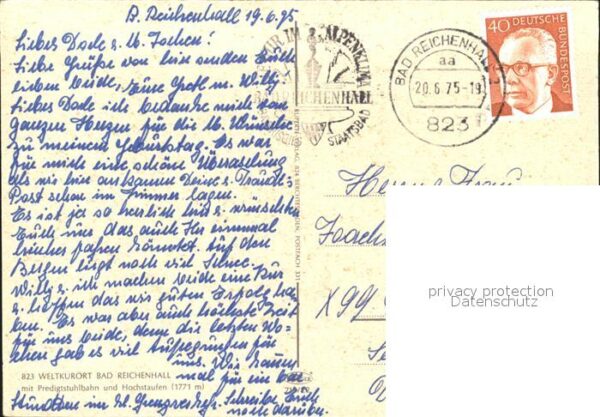 B. Reichenhall 19.6.75
Liebes Dorle u. lb. Jochen!
Liebe Grüße von hier senden Euch
lieben beide, Eure Gretl u. Willy.
Liebes Dorle ich bedanke mich von
ganzem Herzen für die lb. Wünsche
zu meinem Geburtstag. Es war
für mich eine schöne Überraschung
als wir hier ankamen Deine u. Traudls
Post schon im Zimmer lagen.
Es ist ja so herrlich hier u. wünschten
Euch nur das auch Ihr einmal
hierher fahren könntet. Auf den
Bergen liegt noch viel Schnee.
Willy u. ich machen beide eine Kur
u. hoffen das wir guten Erfolg ha-
ben. Es war aber auch höchste Zeit
für uns beide, denn die letzten Wo-
chen gab es viel Aufregungen für
uns. Wir waren
mal für ein paar
Stündchen im
Schreibe Euch
noch darüber.
823 WELTKURORT BAD REICHENHALL
mit Predigtstuhlbahn und Hochstaufen (1771 m)
ALPENKLIMA
BAD REICHENHALL
STAATSBAD
BAD REICHENHALL 1
aa
20.6.75-19
823
40 DEUTSCHE
BUNDESPOST
Herrn u. Frau
Joach
X99
privacy protection
Datenschutz